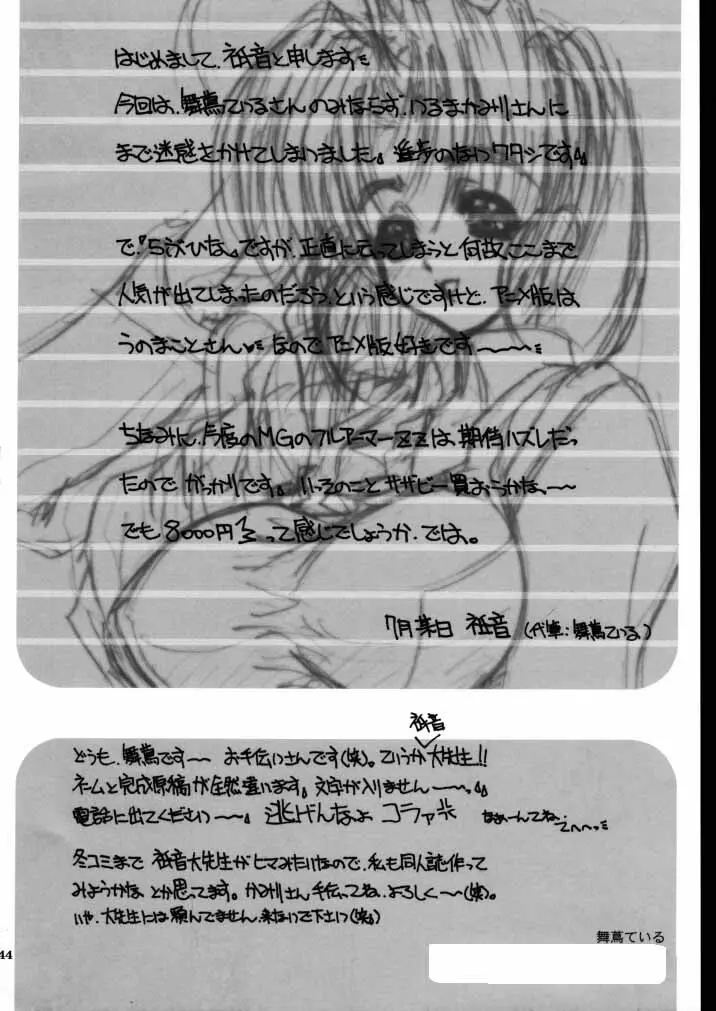 はじめまして、祇音と申します
今回は、舞蔦ているさんのみならず、かるまかみ川さんに
まで迷惑をかけてしまいました。進歩のないワタシです。
で『らぶひな』ですが、正直に云ってしまうと何故、ここまで
人気が出てしまったのだろう、という感じですけど、アニメ版は
うのまことさん なのでアニメ版好きです〜〜〜
ちなみに、今度のMGのフルアーマーZZは、期待ハズレだっ
たので がっかりです。いっそのこと サザビー買おうかな、〜〜
でも8000円 って感じでしょうか、では。
7月某日 祇音 (代筆:舞蔦ている)
祇音
どうも、舞蔦です〜〜 お手伝いさんです(笑)。ていうか大先生!!
ネームと完成原稿が全然違います。文字が入りません〜〜。
電話に出てくださいっ〜〜。逃げんなよ コラァ なぁーんてね、
てへへっ
冬コミまで 祇音大先生がヒマみたいなので、私も同人誌作って
みようかな、とか思ってます。かみ川さん手伝ってね、よろしく〜〜(笑)。
いや、大先生には頼んでません、来ないで下さいっ(笑)
舞蔦ている
44